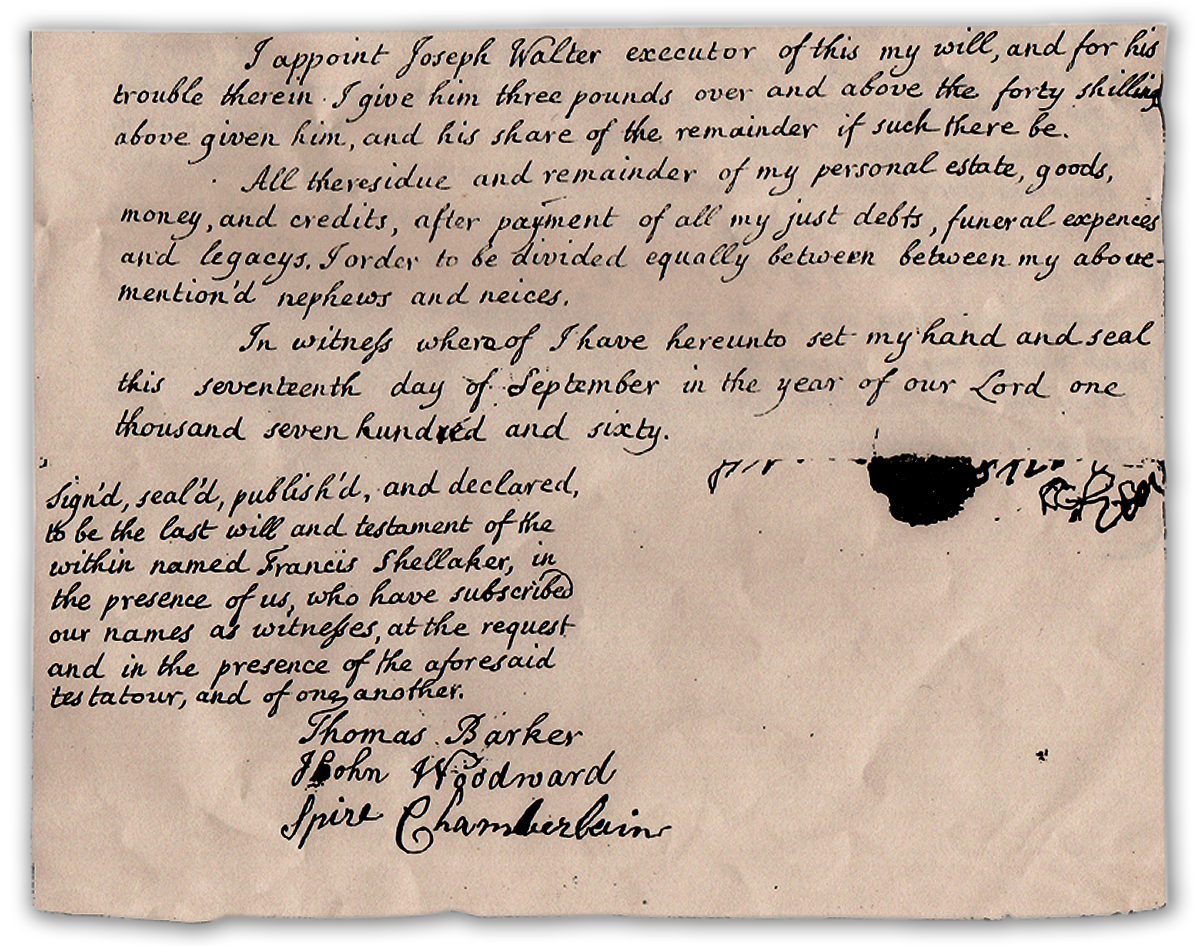 I appoint Joseph Walter executor of this my will, and for his
trouble therein I give him three pounds over and above the forty shilling
above given him, and his share of the remainder if such there be.
All theresidue and remainder of my personal estate, goods,
money, and credits, after payment of all my just debts, funeral expences
and legacys. I order to be divided equally between between my above-
mention'd nephews and neices.
In witneſs whereof I have hereunto set my hand and seal
this seventeenth day of September in the year of our Lord one
thousand seven hundred and sixty.
Sign'd, seal'd, publish'd, and declared,
to be the last will and testament of the
within named Francis Shellaker, in
the presence of us, who have subscribed
our names as witneſses, at the request
and in the presence of the aforesaid
testatour, and of one another.
Thomas Barker
John Woodward
Spire Chamberlain